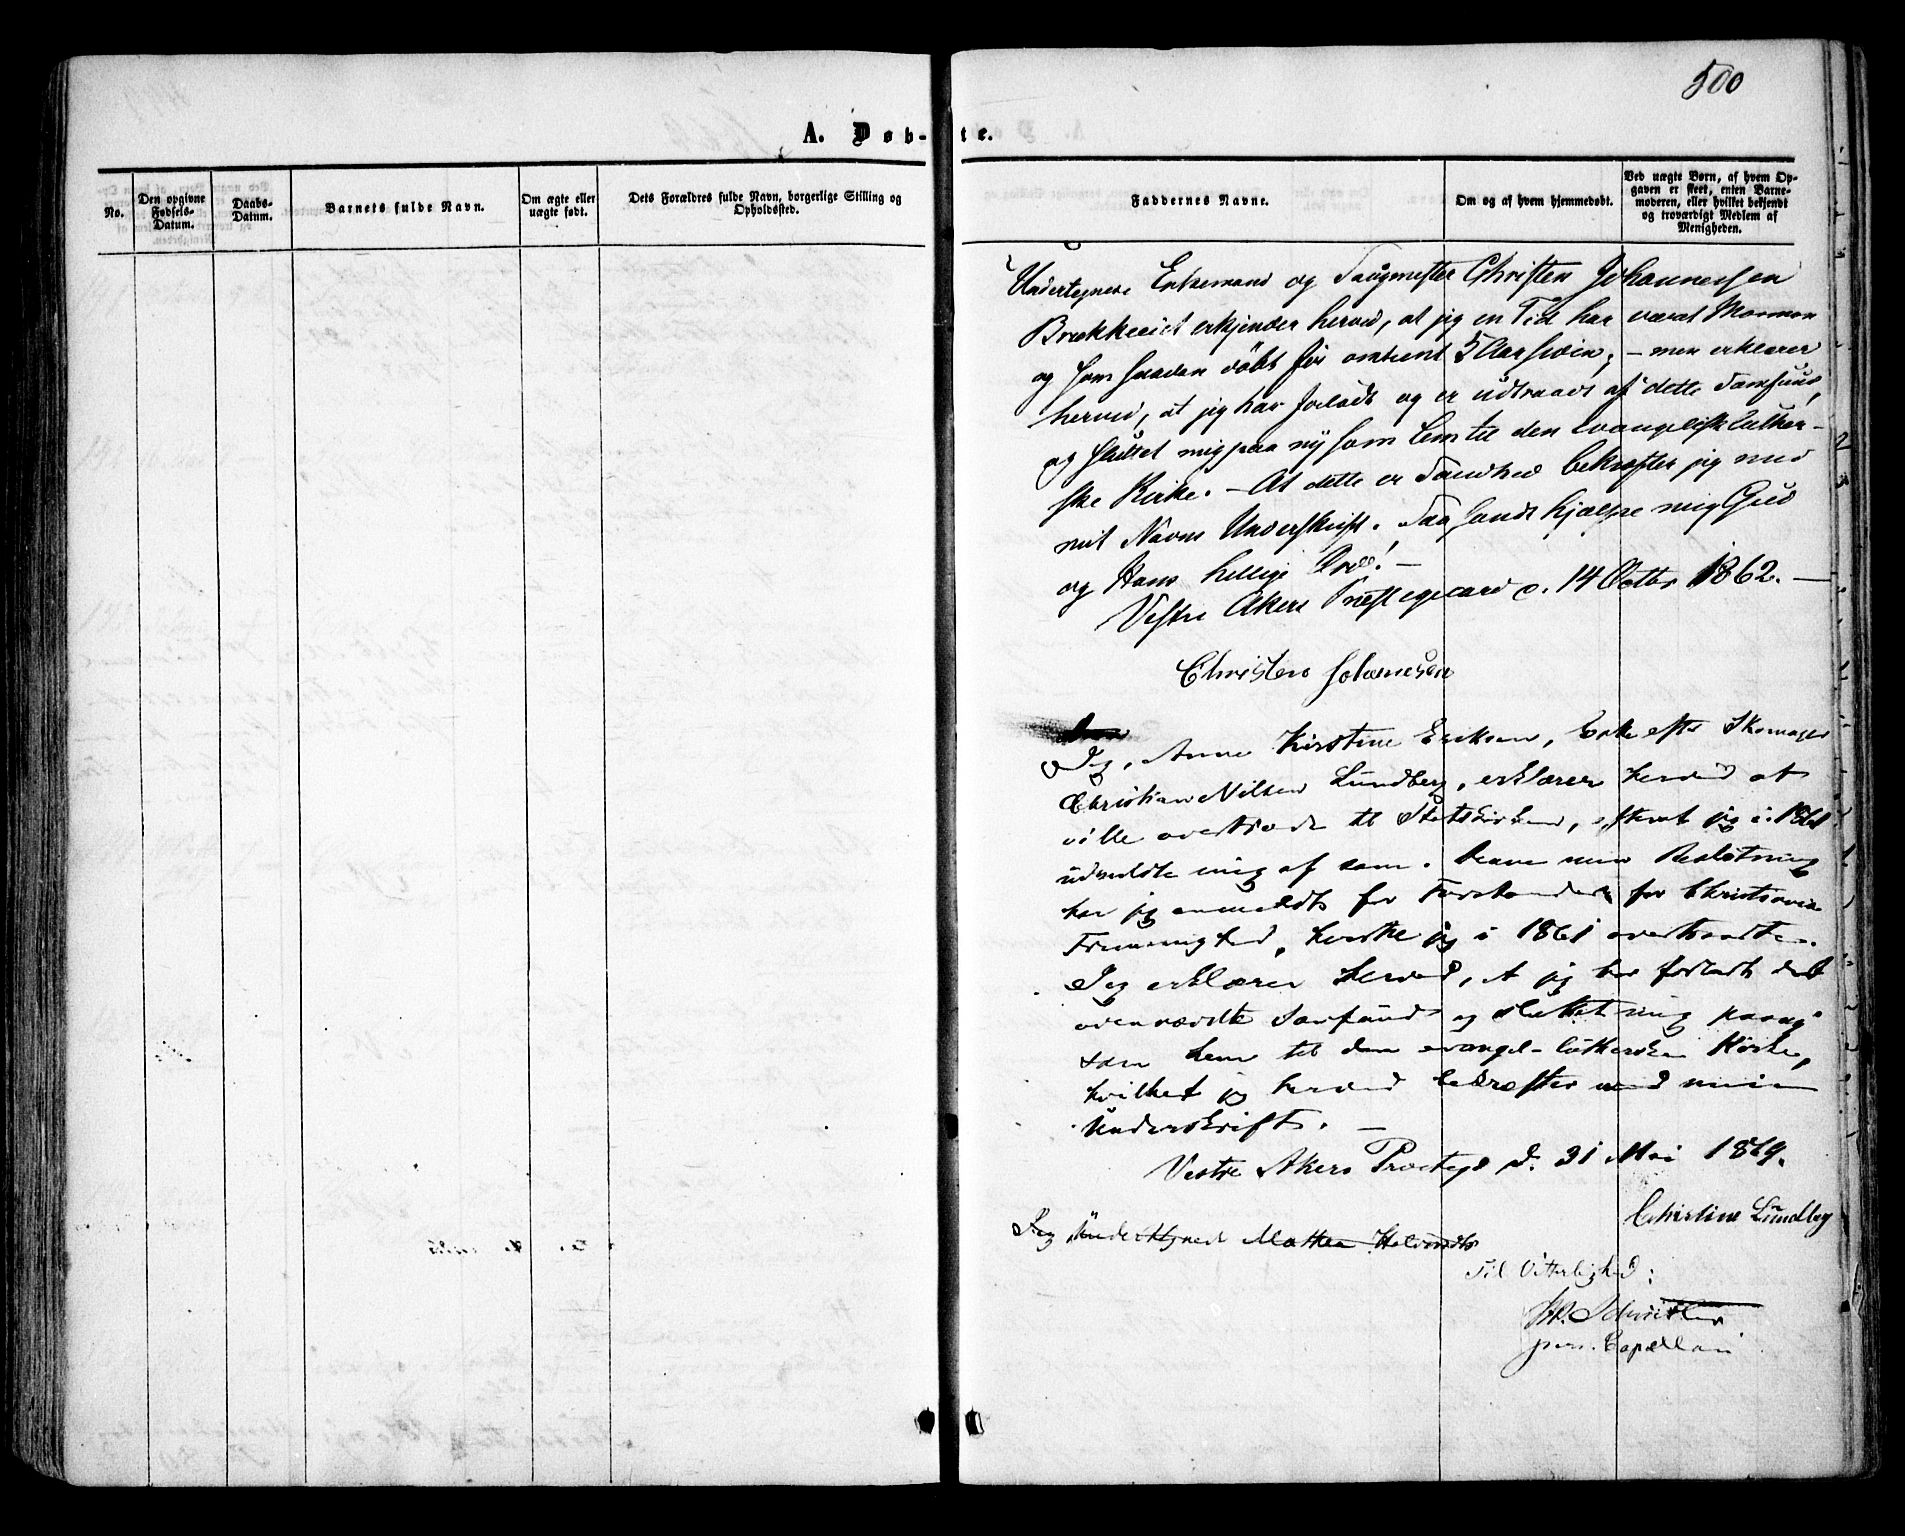 500
A. Døb-te.
No.
Den opgivne Fødsels-Datum.
Daabs-Datum.
Barnets fulde Navn.
Om ægte eller uægte født.
Dets Forældres fulde Navn, borgerlige Stilling og Opholdssted.
Faddernes Navne.
Om og af hvem hjemmedøbt.
Ved uægte Børn, af hvem Opgaven er skeet, enten Barnemoderen, eller hvilket bekjendt og troværdigt Medlem af Menigheden.
Undertegnede Enkemand og Saugmester Christen Johannesen
Brækkeeiet erkjender herved, at jeg en Tid har været Mormon
og som saadan döbt for omtrent 5 Aar siden; – men erklærer
herved, at jeg har forladt og er udtraadt af dette Samfund,
og sluttet mig paa ny som Lem til den Evangelisk luther-
ske Kirke. – At dette er Sandhed bekræfter jeg med
mit Navns Underskrift. Saa sandt hjælpe mig Gud
og Hans hellige Ord! –
Vestre Akers Præstegaard d. 14 Octbr 1862. –
Christen Johanesen
Jeg, Anne Kirstine Eriksen, Enke efter Skomager
Christian Nilsen Lundberg, erklærer herved at
ville overtræde til Statskirken, efterat jeg i 1861
udmeldte mig af sam. Denne min Beslutning
har jeg anmeldt for Forstanderen for Christiania
Frimenighed, hvortil jeg i 1861 overtraadte.
Jeg erklærer herved, at jeg har forladt det
ovennævnte Samfund og sluttet mig paany
som Lem til den evangel-lutherske Kirke,
hvilket jeg herved bekræfter med min
Underskrift. –
Vestre Akers Præstegd d. 31 Mai 1869.
Christine Lundberg
Jeg Undertegnede Mathea
Til Vitterlighed:
pers. Capellan